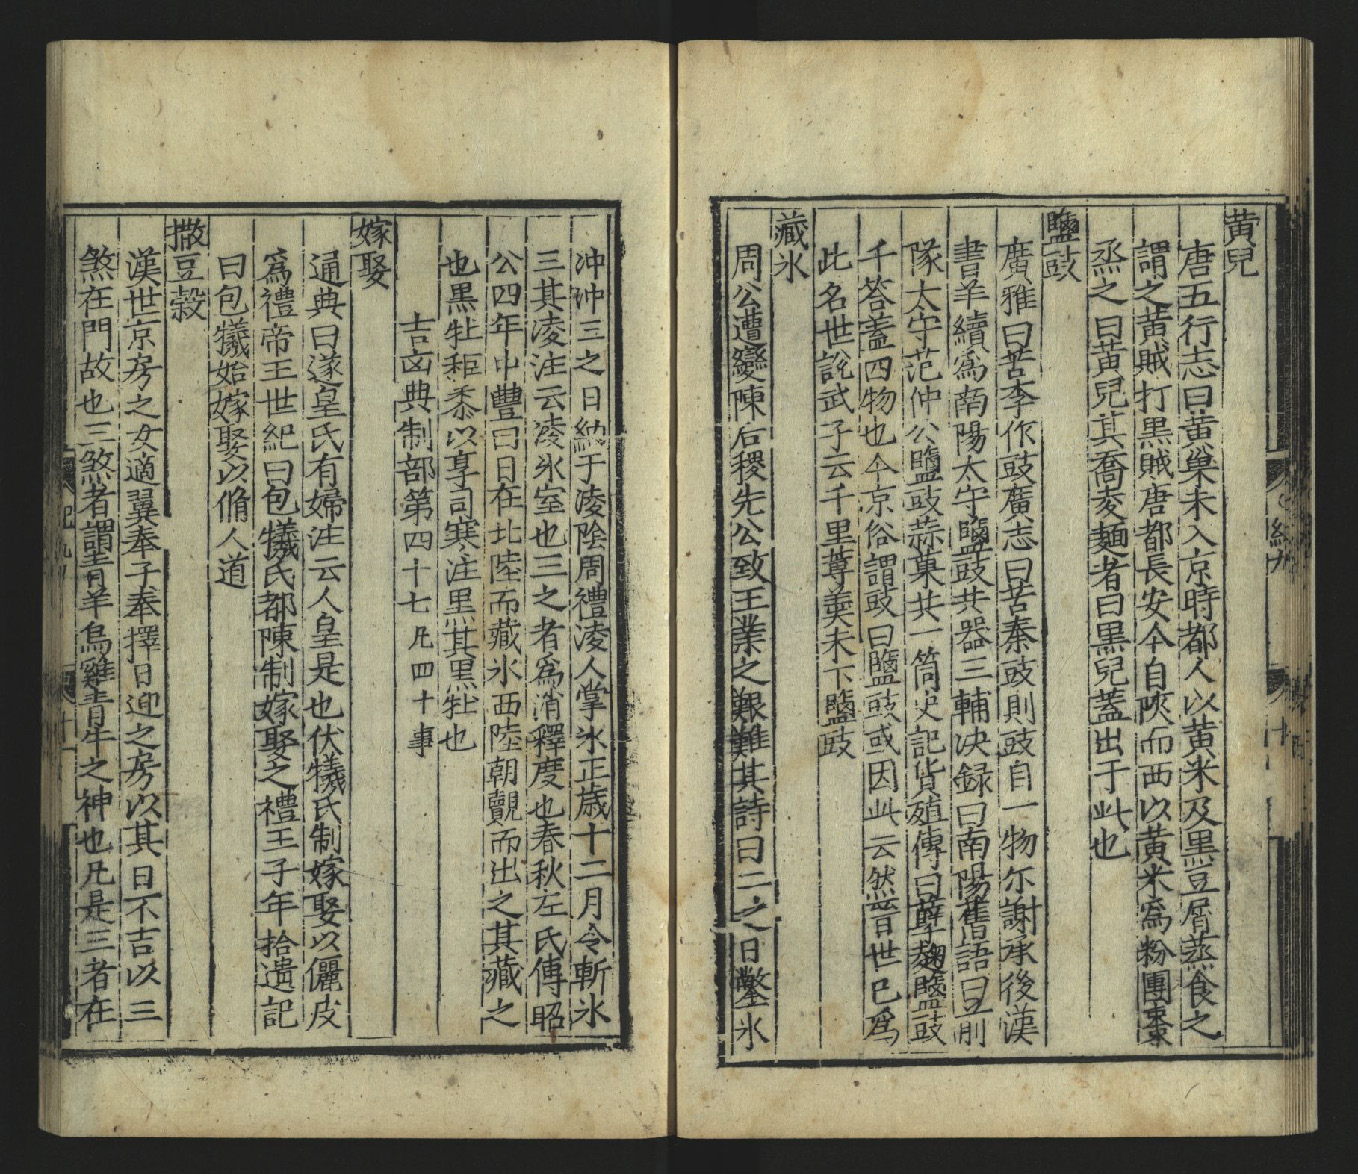 黄兒
唐五行志曰黄巢未入京時都人以黄米及黒豆屑蒸食之
謂之黄賊打黒賊唐都長安今自陜而西以黄米爲粉團棗
烝之曰黄兒其喬麥麺者曰黒兒蓋出于此也
鹽豉
廣雅曰苦李作豉廣志曰苦秦豉則豉自一物尓謝承後漢
書羊續爲南陽太守鹽豉共器三輔决録曰南陽舊語曰前
隊太守范仲公鹽豉蒜菓共一筒史記貨殖傳曰蘖麹鹽豉
千荅蓋四物也今京俗謂豉曰鹽豉或因此云然晉世已爲
此名世説武子云千里蓴羮未下鹽豉
藏氷
周公遭變陳后稷先公致王業之艱難其詩曰二之日鑿氷
沖沖三之日納于凌陰周禮凌人掌氷正歳十二月令斬氷
三其凌注云凌氷室也三之者爲消釋度也春秋左氏傳昭
公四年申豐曰日在北陸而藏氷西陸朝覿而出之其藏之
也黒牡秬黍以享司寒注黒其黒牡也
吉凶典制部第四十七凡四十事
嫁娶
通典曰遂皇氏有婦注云人皇是也伏犧氏制嫁娶以儷皮
爲禮帝王世紀曰包犧氏都陳制嫁娶之禮王子年拾遺記
曰包犧始嫁娶以脩人道
撒豆穀
漢世京房之女適翼奉子奉擇日迎之房以其日不吉以三
煞在門故也三煞者謂青羊烏雞青牛之神也凡是三者在